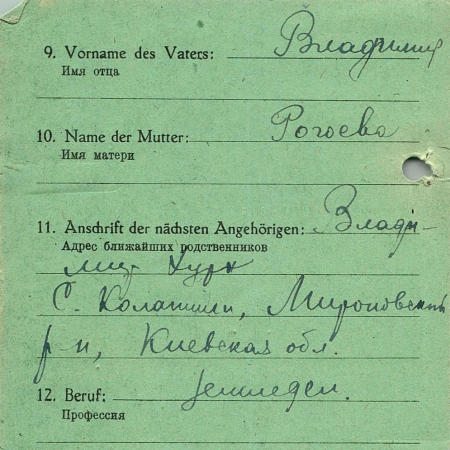 9. Vorname des Vaters: Владимир
Имя отца
10. Name der Mutter: Рогоева
Имя матери
11. Anschrift der nächsten Angehörigen: Влади-
Адрес ближайших родственников
мир
С. Мироновский
р-н, Киевская обл.
12. Beruf: земледел.
Профессия